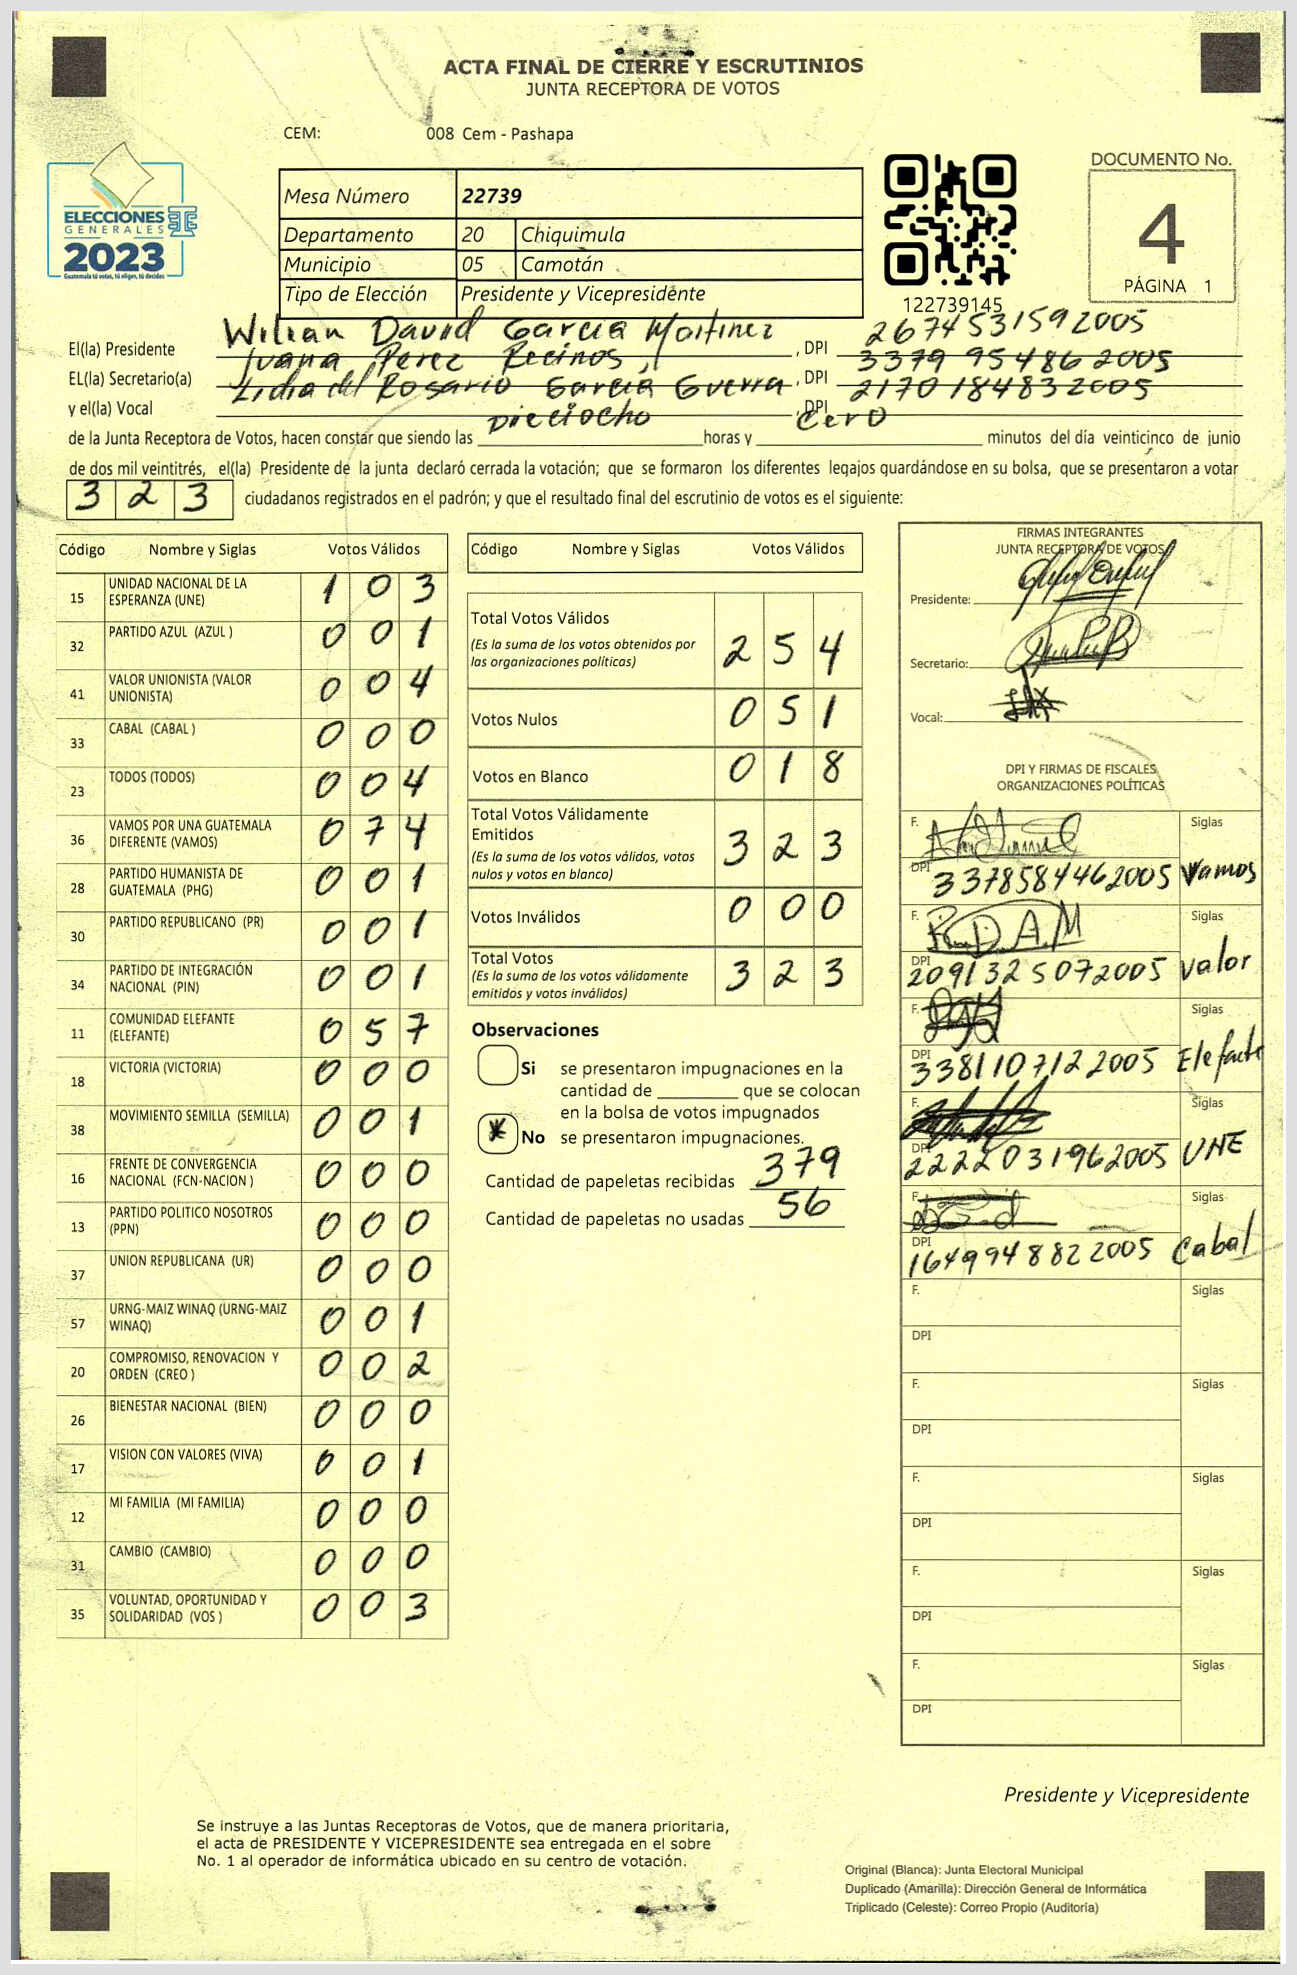 ACTA FINAL DE CIERRE Y ESCRUTINIOS
JUNTA RECEPTORA DE VOTOS
CEM: 008 Cem - Pashapa
ELECCIONES
GENERALES
2023
Guatemala tú votas, tú eliges, tú decides
Mesa Número 22739
Departamento 20 Chiquimula
Municipio 05 Camotán
Tipo de Elección Presidente y Vicepresidente
122739145
DOCUMENTO No.
4
PÁGINA 1
El(la) Presidente Wilian David Garcia Martinez, DPI 2674531592005
EL(la) Secretario(a) Juana Perez Recinos, DPI 3379 95486 2005
y el(la) Vocal Lidia del Rosario Garcia Guerra, DPI 2170184832005
de la Junta Receptora de Votos, hacen constar que siendo las Dieciocho horas y Cero minutos del día veinticinco de junio
de dos mil veintitrés, el(la) Presidente de la junta declaró cerrada la votación; que se formaron los diferentes legajos guardándose en su bolsa, que se presentaron a votar
3 2 3 ciudadanos registrados en el padrón; y que el resultado final del escrutinio de votos es el siguiente:
Código Nombre y Siglas Votos Válidos
15 UNIDAD NACIONAL DE LA ESPERANZA (UNE) 1 0 3
32 PARTIDO AZUL (AZUL ) 0 0 1
41 VALOR UNIONISTA (VALOR UNIONISTA) 0 0 4
33 CABAL (CABAL ) 0 0 0
23 TODOS (TODOS) 0 0 4
36 VAMOS POR UNA GUATEMALA DIFERENTE (VAMOS) 0 7 4
28 PARTIDO HUMANISTA DE GUATEMALA (PHG) 0 0 1
30 PARTIDO REPUBLICANO (PR) 0 0 1
34 PARTIDO DE INTEGRACIÓN NACIONAL (PIN) 0 0 1
11 COMUNIDAD ELEFANTE (ELEFANTE) 0 5 7
18 VICTORIA (VICTORIA) 0 0 0
38 MOVIMIENTO SEMILLA (SEMILLA) 0 0 1
16 FRENTE DE CONVERGENCIA NACIONAL (FCN-NACION ) 0 0 0
13 PARTIDO POLITICO NOSOTROS (PPN) 0 0 0
37 UNION REPUBLICANA (UR) 0 0 0
57 URNG-MAIZ WINAQ (URNG-MAIZ WINAQ) 0 0 1
20 COMPROMISO, RENOVACION Y ORDEN (CREO ) 0 0 2
26 BIENESTAR NACIONAL (BIEN) 0 0 0
17 VISION CON VALORES (VIVA) 0 0 1
12 MI FAMILIA (MI FAMILIA) 0 0 0
31 CAMBIO (CAMBIO) 0 0 0
35 VOLUNTAD, OPORTUNIDAD Y SOLIDARIDAD (VOS ) 0 0 3
Código Nombre y Siglas Votos Válidos
Total Votos Válidos 2 5 4
(Es la suma de los votos obtenidos por
las organizaciones políticas)
Votos Nulos 0 5 1
Votos en Blanco 0 1 8
Total Votos Válidamente
Emitidos 3 2 3
(Es la suma de los votos válidos, votos
nulos y votos en blanco)
Votos Inválidos 0 0 0
Total Votos 3 2 3
(Es la suma de los votos válidamente
emitidos y votos inválidos)
Observaciones
Si se presentaron impugnaciones en la
cantidad de ________ que se colocan
en la bolsa de votos impugnados
No se presentaron impugnaciones.
Cantidad de papeletas recibidas 379
Cantidad de papeletas no usadas 56
FIRMAS INTEGRANTES
JUNTA RECEPTORA DE VOTOS
Presidente:
Secretario:
Vocal:
DPI Y FIRMAS DE FISCALES
ORGANIZACIONES POLÍTICAS
F. Siglas
DPI 3378584462005 Vamos
F. Siglas
DPI 2091325072005 Valor
F. Siglas
DPI 3381107122005 Elefante
F. Siglas
DPI 2222031962005 UNE
F. Siglas
DPI 1649948822005 Cabal
F. Siglas
DPI
F. Siglas
DPI
F. Siglas
DPI
F. Siglas
DPI
F. Siglas
DPI
Presidente y Vicepresidente
Se instruye a las Juntas Receptoras de Votos, que de manera prioritaria,
el acta de PRESIDENTE Y VICEPRESIDENTE sea entregada en el sobre
No. 1 al operador de informática ubicado en su centro de votación.
Original (Blanca): Junta Electoral Municipal
Duplicado (Amarilla): Dirección General de Informática
Triplicado (Celeste): Correo Propio (Auditoría)